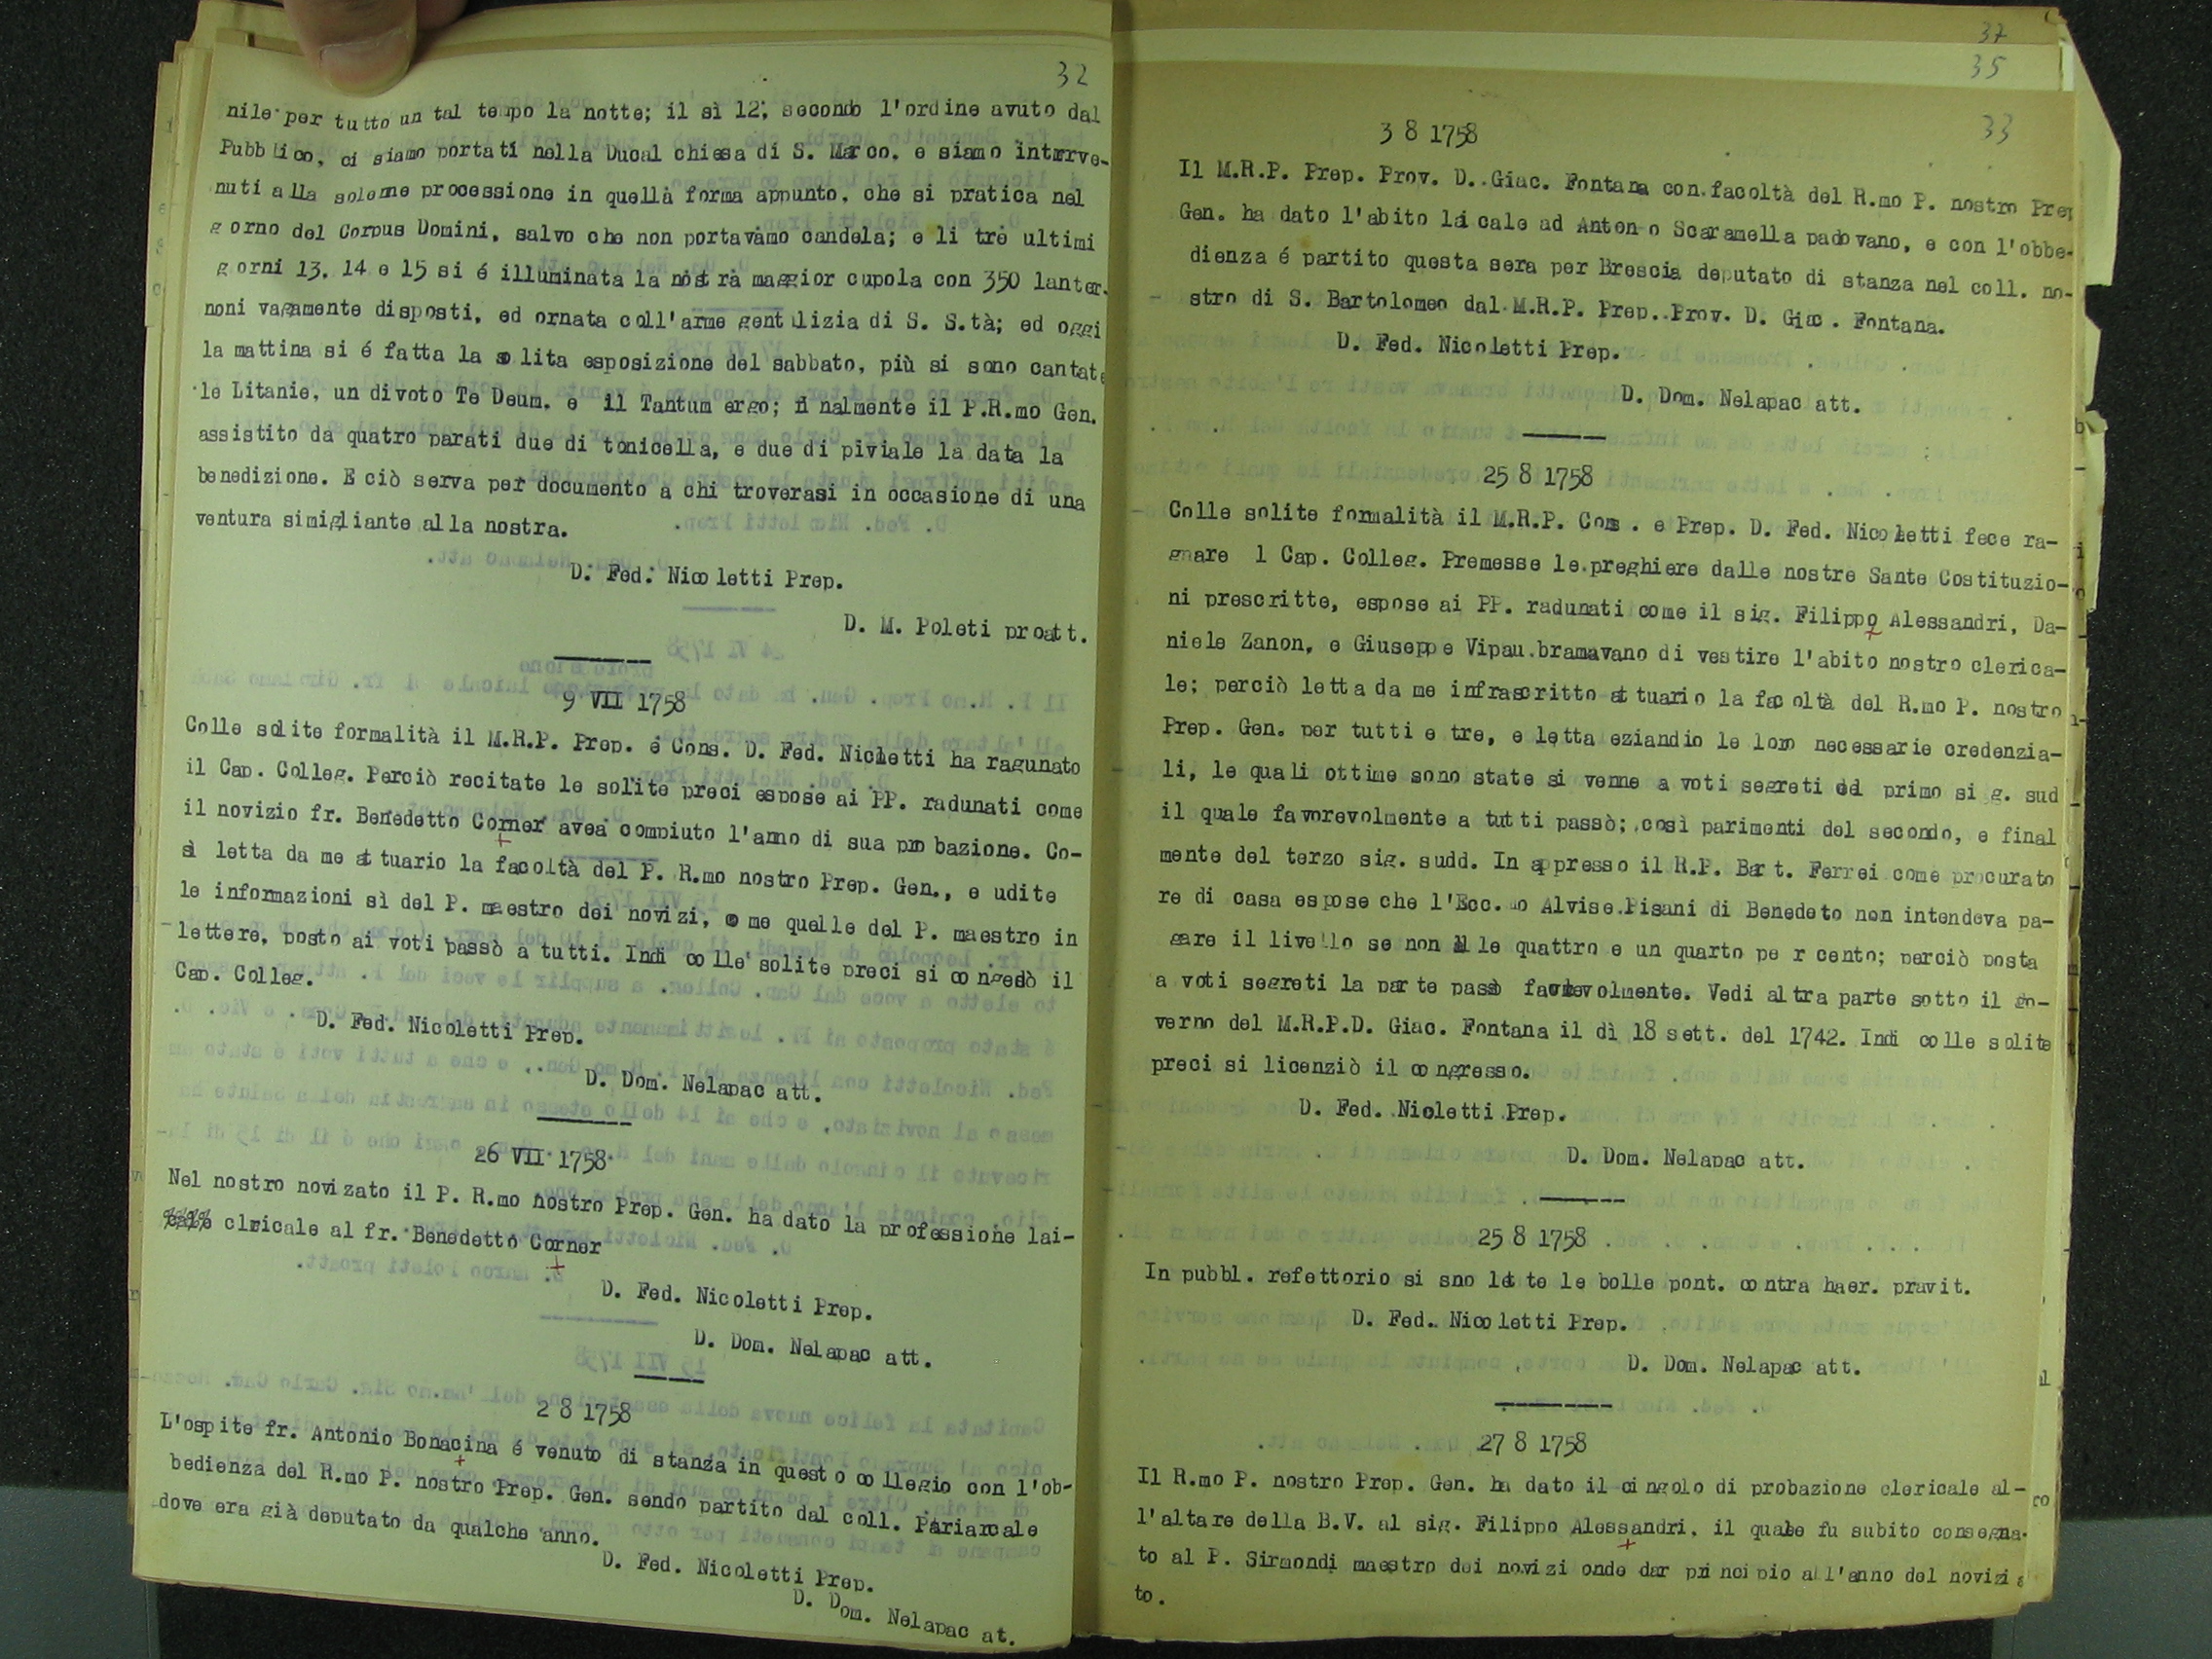 32
nile per tutto un tal tempo la notte; il sì 12, secondo l'ordine avuto dal
Pubblico, ci siamo portati nella Ducal chiesa di S. Marco, e siamo interve-
nuti alla solenne processione in quella forma appunto, che si pratica nel
gorno del Corpus Domini, salvo che non portavamo candela; e li tre ultimi
gorni 13, 14 e 15 si é illuminata la nostra maggior cupola con 350 lanter.
noni vagamente disposti, ed ornata coll'arme gentilizia di S. S.tà; ed oggi
la mattina si é fatta la solita esposizione del sabbato, più si sono cantate
le Litanie, un divoto Te Deum, e il Tantum ergo; finalmente il P.R.mo Gen.
assistito da quatro parati due di tonicella, e due di piviale la data la
benedizione. E ciò serva per documento a chi troverasi in occasione di una
ventura simigliante alla nostra.
D. Fed. Nicoletti Prep.
D. M. Poleti proatt.
9 VII 1758
Colle solite formalità il M.R.P. Prep. é Cons. D. Fed. Nicoletti ha ragunato
il Cap. Colleg. Perciò recitate le solite preci espose ai PP. radunati come
il novizio fr. Benedetto Corner avea compiuto l'anno di sua probazione. Co-
sì letta da me attuario la facoltà del P. R.mo nostro Prep. Gen., e udite
le informazioni sì del P. maestro dei novizi, come quelle del P. maestro in
lettere, posto ai voti passò a tutti. Indi colle solite preci si congedò il
Cap. Colleg.
D. Fed. Nicoletti Prep.
D. Dom. Nelapac att.
26 VII 1758
Nel nostro novizato il P. R.mo nostro Prep. Gen. ha dato la professione lai-
cale clericale al fr. Benedetto Corner
D. Fed. Nicoletti Prep.
D. Dom. Nelapac att.
2 8 1758
L'ospite fr. Antonio Bonacina é venuto di stanza in questo collegio con l'ob-
bedienza del R.mo P. nostro Prep. Gen. sendo partito dal coll. Pariarcale
dove era già deputato da qualche anno.
D. Fed. Nicoletti Prep.
D. Dom. Nelapac at.
37
35
33
3 8 1758
Il M.R.P. Prep. Prov. D. Giac. Fontana con facoltà del R.mo P. nostro Prep
Gen. ha dato l'abito laicale ad Antonio Scaramella padovano, e con l'obbe-
dienza é partito questa sera per Brescia deputato di stanza nel coll. no-
stro di S. Bartolomeo dal M.R.P. Prep. Prov. D. Giac. Fontana.
D. Fed. Nicoletti Prep.
D. Dom. Nelapac att.
25 8 1758
Colle solite formalità il M.R.P. Cons. e Prep. D. Fed. Nicoletti fece ra-
gnare l Cap. Colleg. Premesse le preghiere dalle nostre Sante Costituzio-
ni prescritte, espose ai PP. radunati come il sig. Filippo Alessandri, Da-
niele Zanon, e Giuseppe Vipau bramavano di vestire l'abito nostro clerica-
le; perciò letta da me infrascritto attuario la facoltà del R.mo P. nostro
Prep. Gen. per tutti e tre, e letta eziandio le loro necessarie credenzia-
li, le quali ottime sono state si venne a voti segreti del primo sig. sud
il quale favorevolmente a tutti passò; così parimenti del secondo, e final
mente del terzo sig. sudd. In appresso il R.P. Bart. Ferrei come procurato
re di casa espose che l'Ecc.mo Alvise Pisani di Benedeto non intendeva pa-
gare il livello se non alle quattro e un quarto per cento; perciò posta
a voti segreti la parte passò favorevolmente. Vedi altra parte sotto il go-
verno del M.R.P.D. Giac. Fontana il dì 18 sett. del 1742. Indi colle solite
preci si licenziò il congresso.
D. Fed. Nicletti Prep.
D. Dom. Nelapac att.
25 8 1758
In pubbl. refettorio si sno lette le bolle pont. contra haer. pravit.
D. Fed. Nicoletti Prep.
D. Dom. Nelapac att.
27 8 1758
Il R.mo P. nostro Prep. Gen. ha dato il cingolo di probazione clericale al-
l'altare della B.V. al sig. Filippo Alessandri, il quale fu subito consegna-
to al P. Sirmondi maestro dei novizi onde dar principio all'anno del novizia
to.